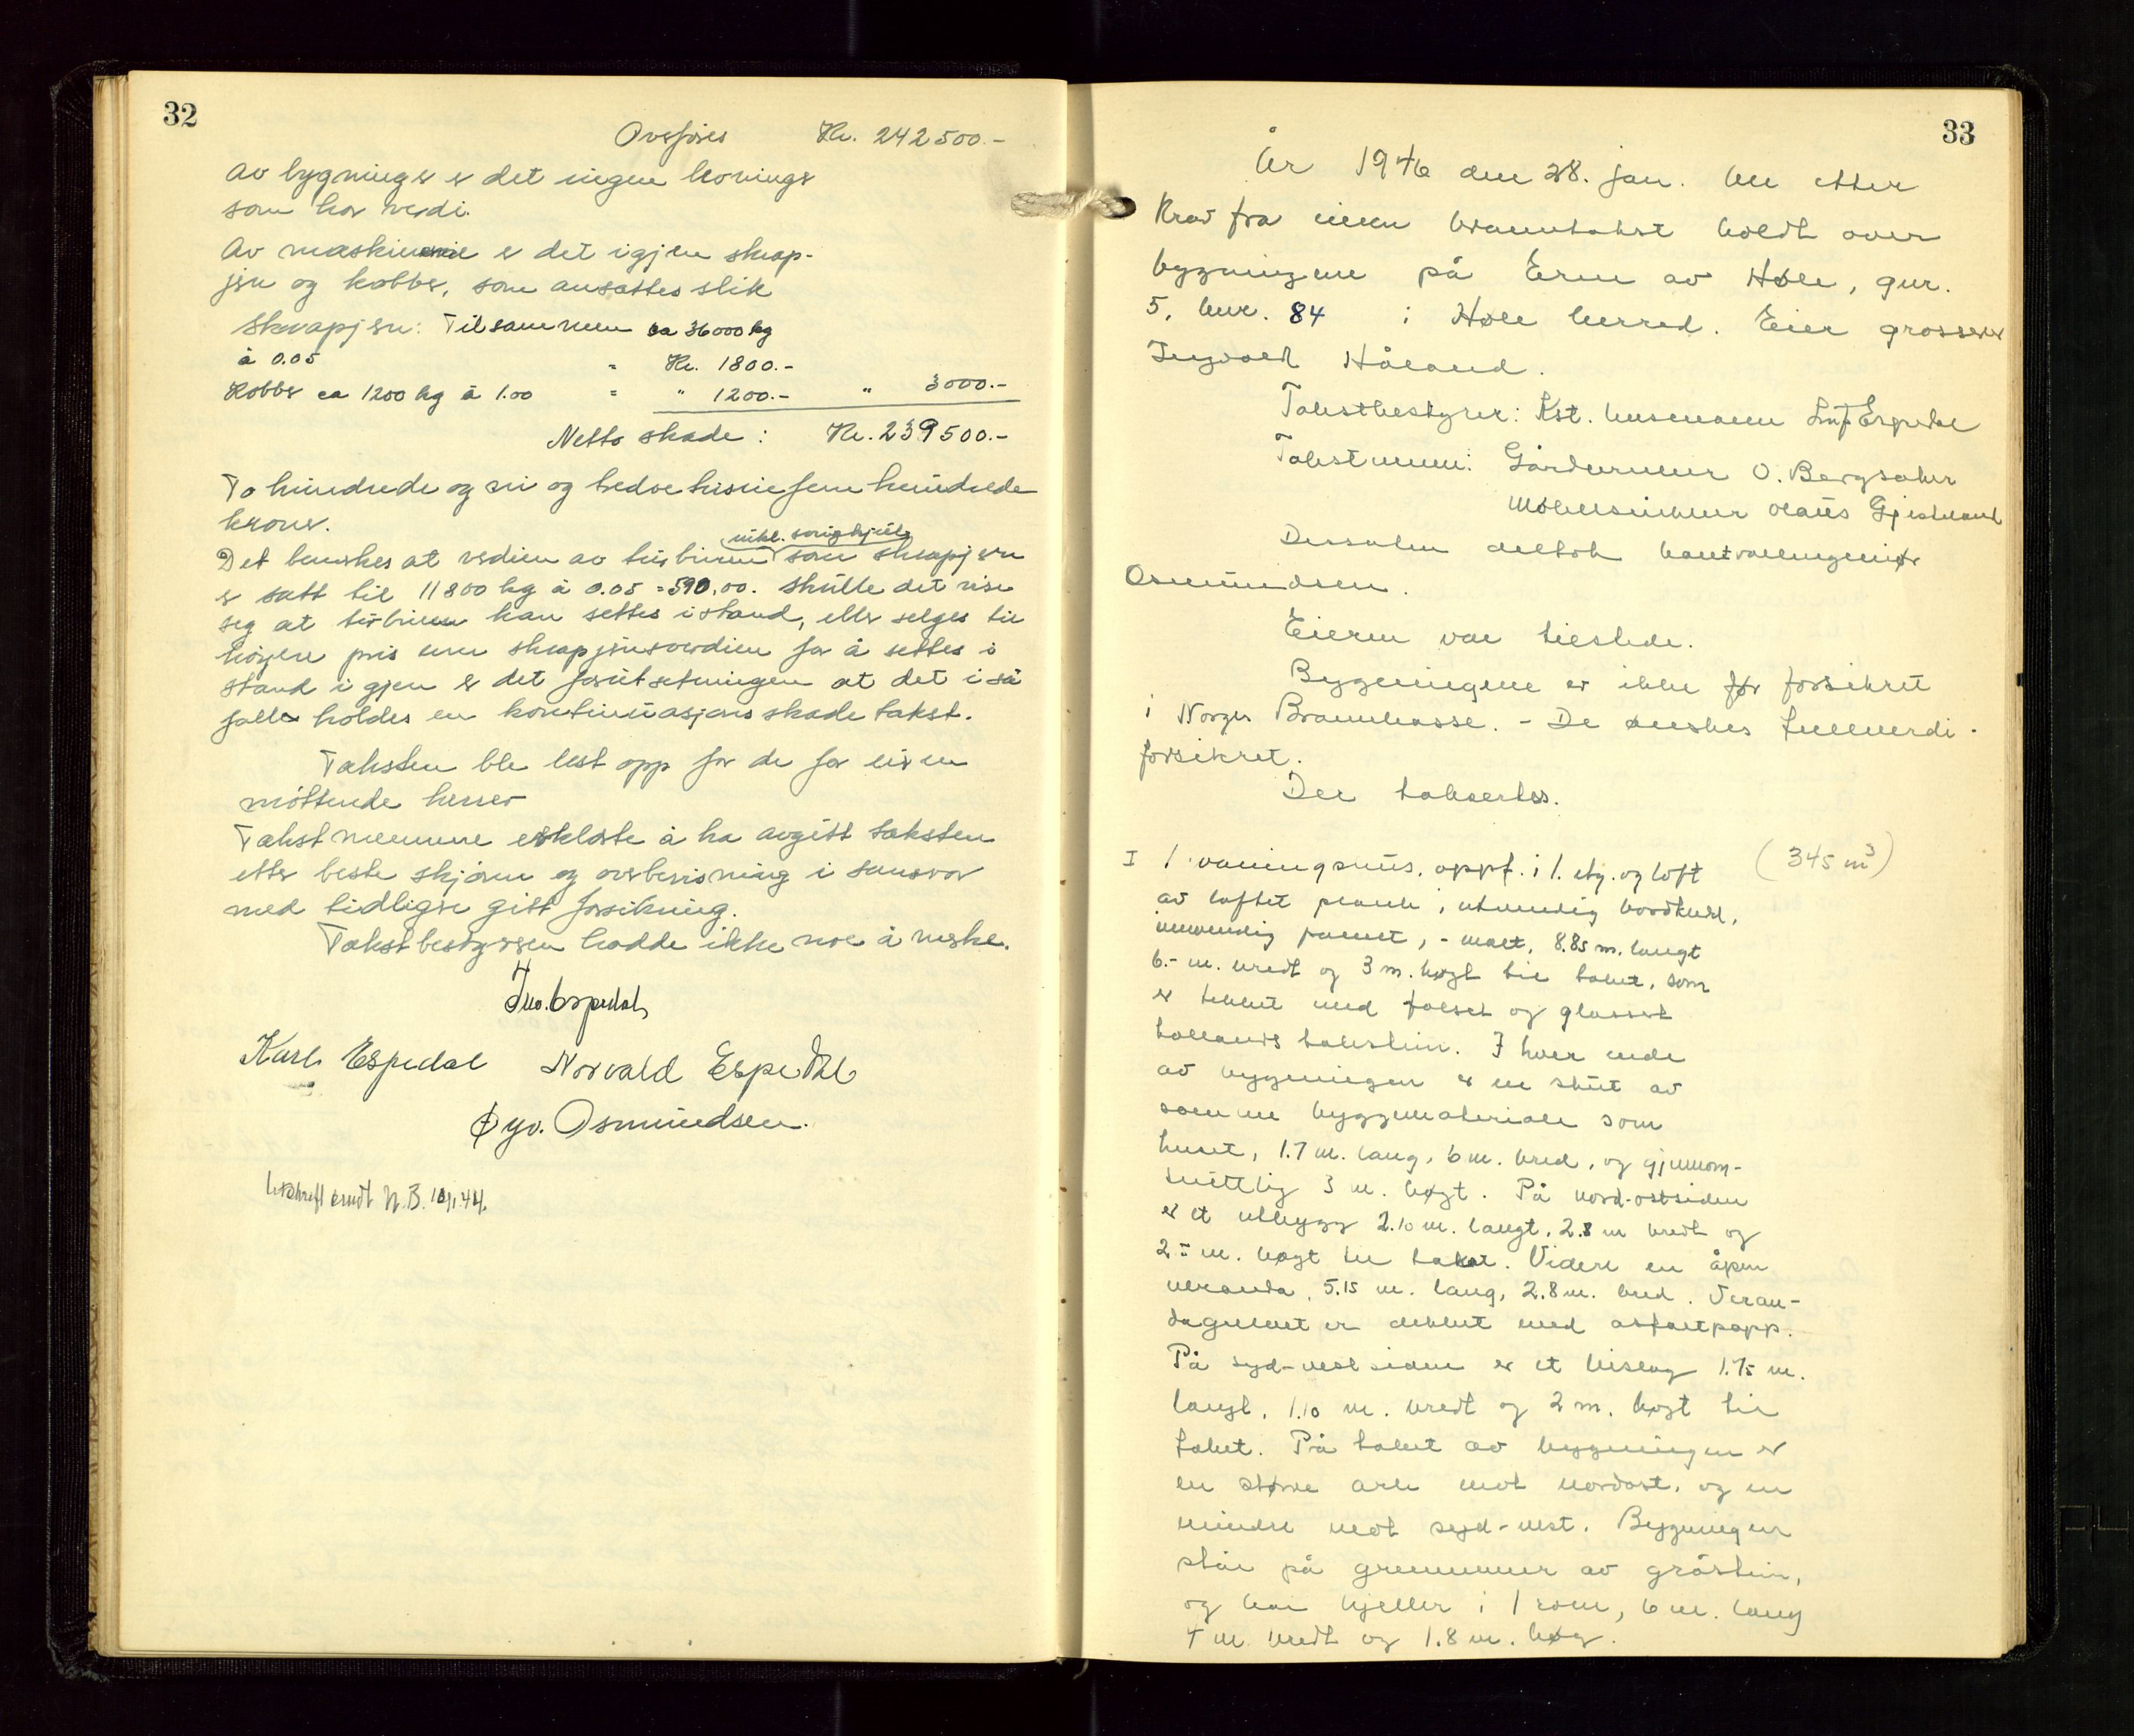 32
Overføres Kr. 242500.-
Av bygninger er det ingen levninger
som har verdi.
Av maskineriet er det igjen skrap-
jern og kobber, som ansættes slik
Skrapjern: Tilsammen ca 36000 kg
à 0.05 = Kr. 1800.-
Kobber ca 1200 kg à 1.00 = " 1200.- " 3000.-
Netto skade: Kr. 239500.-
To hundrede og ni og tredve tusine fem hundrede
kroner.
inkl. svinghjul
Det bemerkes at verdien av turbinen som skrapjern
er satt til 11800 kg à 0.05 = 590,00. Skulle det vise
seg at turbinen kan settes istand, eller selges til
høyere pris enn skrapjernsverdien for å settes i
stand igjen er det forutsetningen at det i så
falle holdes en kontinuasjons skadetakst.
Taksten ble lest opp for de for eieren
møttende herrer
Takstmennene erklærte å ha avgitt taksten
etter beste skjønn og overbevisning i samsvar
med tidligere gitt forsikring.
Takstbestyreren hadde ikke noe å merke.
Espedal
Karl Espedal Norvald Espedal
Øyv. Osmundsen.
Utskrift sendt N.B. 44.
33
År 1946 den 28. jan. ble etter
krav fra eieren branntakst holdt over
bygningene på Eren av Høle, gnr.
5, bnr. 84 i Høle herred. Eier grosserer
Ingvald Håland.
Takstbestyrer: Kst. lensmann Espedal
Takstmenn: Gårdbruker O. Bergsaker
Møbelsnikker Olaus Gjesteland
Dessuten deltok kontrollingeniør
Osmundsen.
Eieren var tilstede.
Bygningene er ikke før forsikret
i Norges Brannkasse. - De ønskes fullverdi-
forsikret.
Det takseres.
I 1 våningshus, oppf. i 1. etg. og loft (345 m³)
av laftet plank, utvendig bordkled,
innvendig panelt, - malt, 8.85 m. langt
6.- m. bredt og 3 m. høgt til taket, som
er tekket med falset og glassert
hollands takstein. I hver ende
av bygningen er en skut av
samme byggemateriale som
huset, 1.7 m. lang, 6 m. bred, og gjennom-
snittlig 3 m. høgt. På nord-ostsiden
er et utbygg 2.10 m. langt, 2.8 m bredt og
2.- m. høgt til taket. Videre en åpen
veranda, 5.15 m. lang, 2.8 m. bred. Veran-
dagulvet er dekket med asfaltpapp.
På syd-vestsiden er et bislag 1.75 m.
langt, 1.10 m. bredt og 2 m. høgt til
taket. På taket av bygningen er
en større ark mot nordost, og en
mindre mot syd-vest. Bygningen
står på grunnmur av gråstein,
og har kjeller i 1 rom, 6 m. lang
4 m. bredt og 1.8 m. høg.